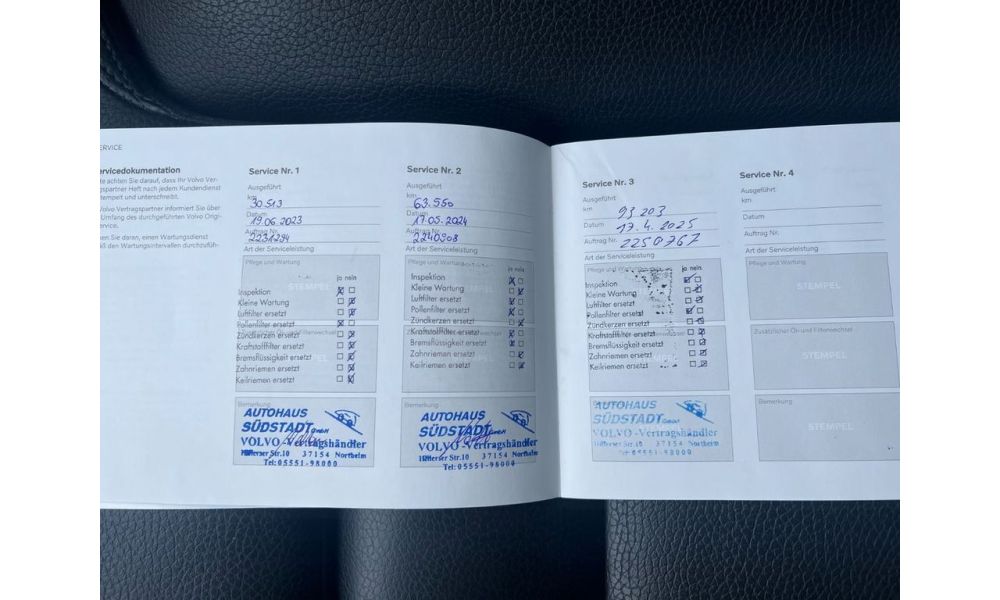 ERVICE
ervicedokumentation
te achten Sie darauf, dass Ihr Volvo Ver-
gspartner Heft nach jedem Kundendienst
tempelt und unterschreibt.
Volvo Vertragspartner informiert Sie über
Umfang des durchgeführten Volvo Origi-
ervice.
en Sie daran, einen Wartungsdienst
äß den Wartungsintervallen durchzufüh-
Service Nr. 1
Ausgeführt
km
30 513
Datum
19.06.2023
Auftrag Nr.
2231294
Art der Serviceleistung
Pflege und Wartung
ja nein
STEMPEL
Inspektion
Kleine Wartung
Luftfilter ersetzt
Pollenfilter ersetzt
Zündkerzen ersetzt
Kraftstofffilter ersetzt
Bremsflüssigkeit ersetzt
Zahnriemen ersetzt
Keilriemen ersetzt
Bemerkung
AUTOHAUS
SÜDSTADT GmbH
VOLVO-Vertragshändler
37154 Northeim
Tel:05551-98000
Service Nr. 2
Ausgeführt
km
63.550
Datum
17.05.2024
Auftrag Nr.
2240908
Art der Serviceleistung
Pflege und Wartung
ja nein
Inspektion
Kleine Wartung
Luftfilter ersetzt
Pollenfilter ersetzt
Zündkerzen ersetzt
Kraftstofffilter ersetzt
Bremsflüssigkeit ersetzt
Zahnriemen ersetzt
Keilriemen ersetzt
Bemerkung
AUTOHAUS
SÜDSTADT GmbH
VOLVO-Vertragshändler
Str.10 37154 Northeim
Tel:05551-98000
Service Nr. 3
Ausgeführt
km 93 203
Datum 17.4.2025
Auftrag Nr. 2250767
Art der Serviceleistung
Pflege und Wartung
ja nein
Inspektion
Kleine Wartung
Luftfilter ersetzt
Pollenfilter ersetzt
Zündkerzen ersetzt
Kraftstofffilter ersetzt
Bremsflüssigkeit ersetzt
Zahnriemen ersetzt
Keilriemen ersetzt
AUTOHAUS
SÜDSTADT GmbH
VOLVO-Vertragshändler
Str.10 37154 Northeim
Service Nr. 4
Ausgeführt
km
Datum
Auftrag Nr.
Art der Serviceleistung
Pflege und Wartung
STEMPEL
Zusätzlicher Öl- und Filterwechsel
STEMPEL
Bemerkung
STEMPEL